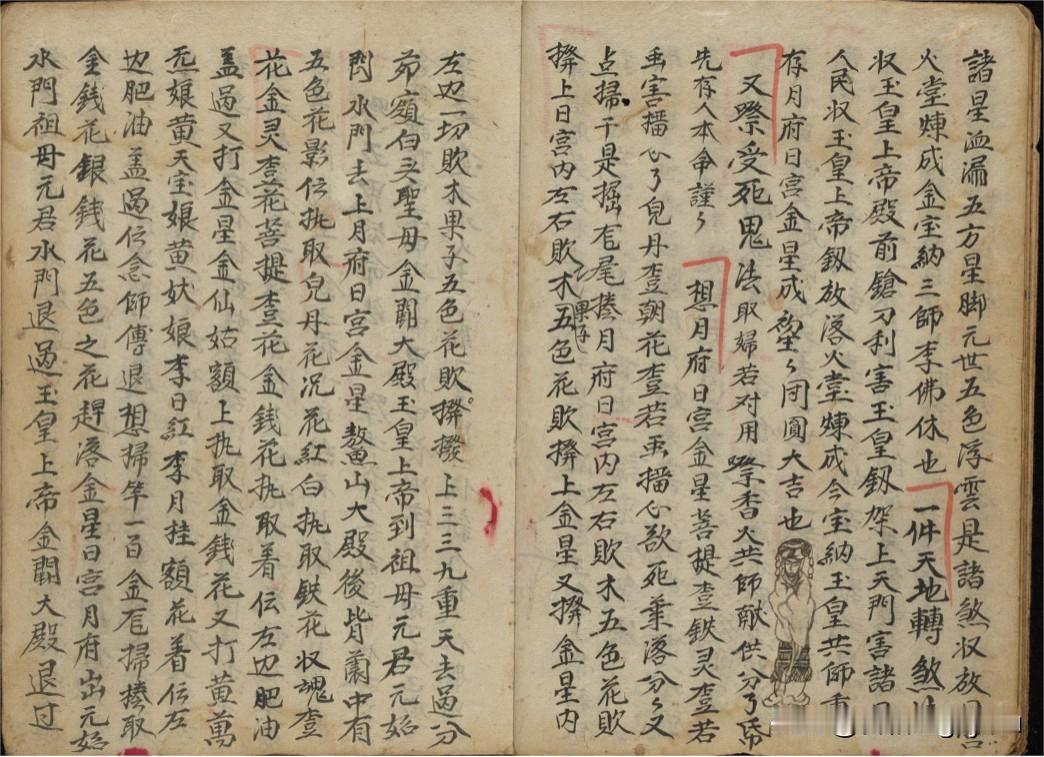 諸星血漏五方星脚元世五色浮雲是諸煞収放
火堂煉成金宝納三師李佛休也 一件天地轉煞
収玉皇上帝殿前鎗刀利害玉皇釼架上天門害諸
人民収玉皇上帝釼放落火堂煉成今宝納玉皇共師
存月府日宮金星成 団圓大吉也
又 受死鬼法 取婦若对用 香火共師献供分
先存人本命謹々 想月府日宮金星菩提 鉄灵 若
害擂心了皃丹 朝花 若 擂心欲死葉落分々又
点掃干是掘 尾 月府日宮内左右欺木五色花欺
上日宮内左右欺木五色花欺 上金星又 金星内
左边一切欺木果子五色花欺 撥上三三九重天去過分
茆 白头聖母金闘大殿玉皇上帝到祖母元君元始
閃水門去上月府日宮金星鰲山大殿後皆蘭中有
五色花影伝执取皃丹花况花紅白执取鉄花収魂
花金灵 花菩提 花金銭花执取着伝左边肥油
盖過又打金星金仙姑額上执取金銭花又打黄萬
娘黄天宝娘黄妖娘李日紅李月挂額花着伝左
边肥油盖過伝念師傅退想掃竿一百金 掃 取
金銭花銀銭花五色之花趕落金星日宮月府出元始
水門祖母元君水門退過玉皇上帝金闘大殿退过